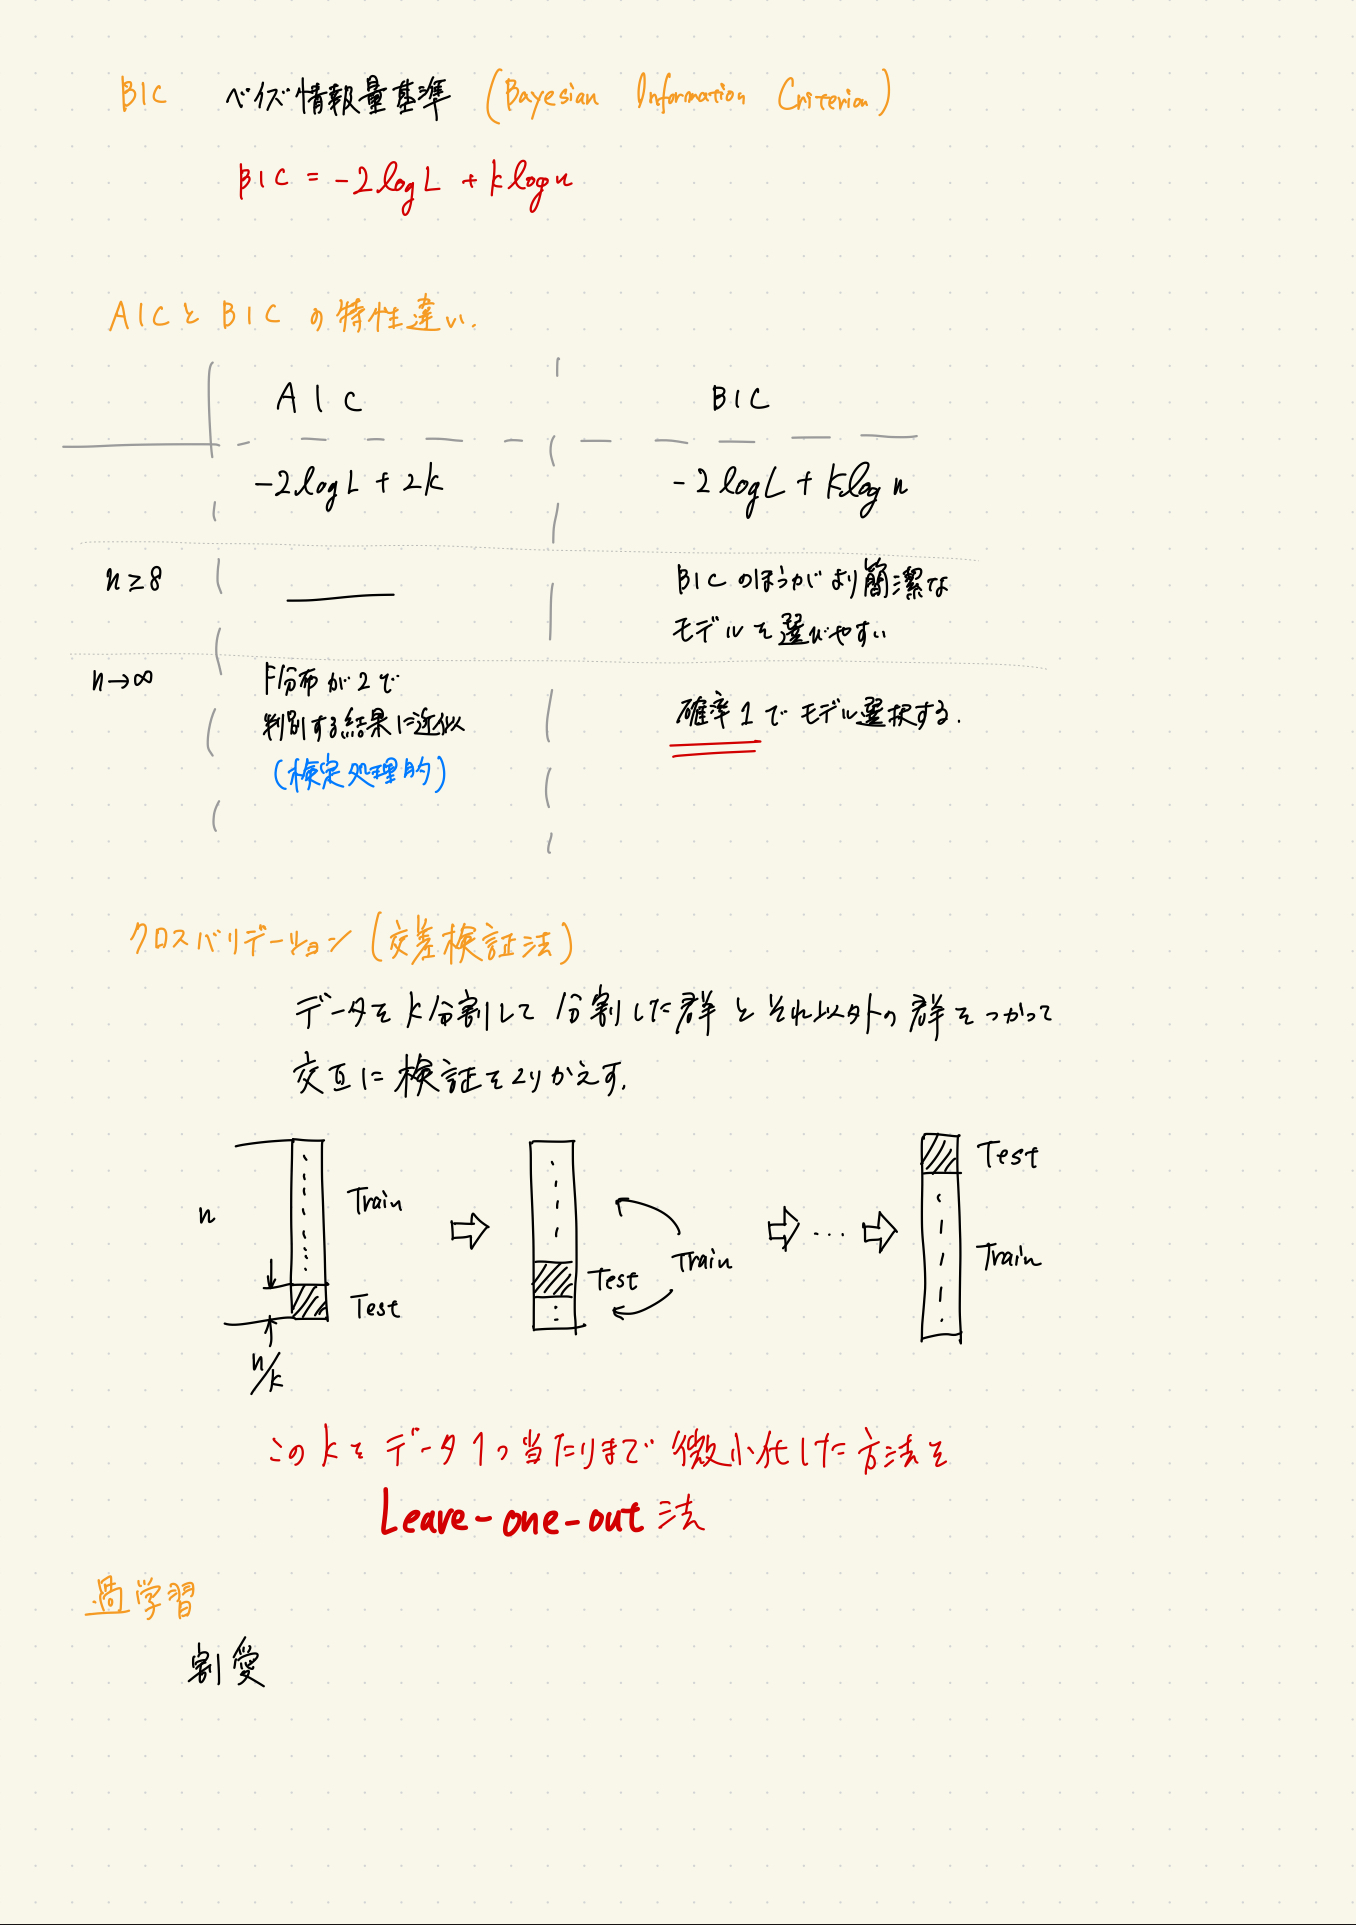 BIC ベイズ情報量基準 (Bayesian Information Criterion)
BIC = -2logL + klogn
AICとBICの特性違い.
AIC BIC
-2logL + 2k -2logL + klogn
n≥8 BICのほうがより簡潔な
モデルを選びやすい
n→∞ F分布が2で
判別する結果に近似 確率1でモデル選択する.
(検定処理的)
クロスバリデーション(交差検証法)
データをk分割して分割した群とそれ以外の群をつかって
交互に検証をくりかえす.
n Train Test n/k
Test Train
...
Test Train
このkをデータ1つ当たりまで微小化した方法を
Leave-one-out法
過学習
割愛